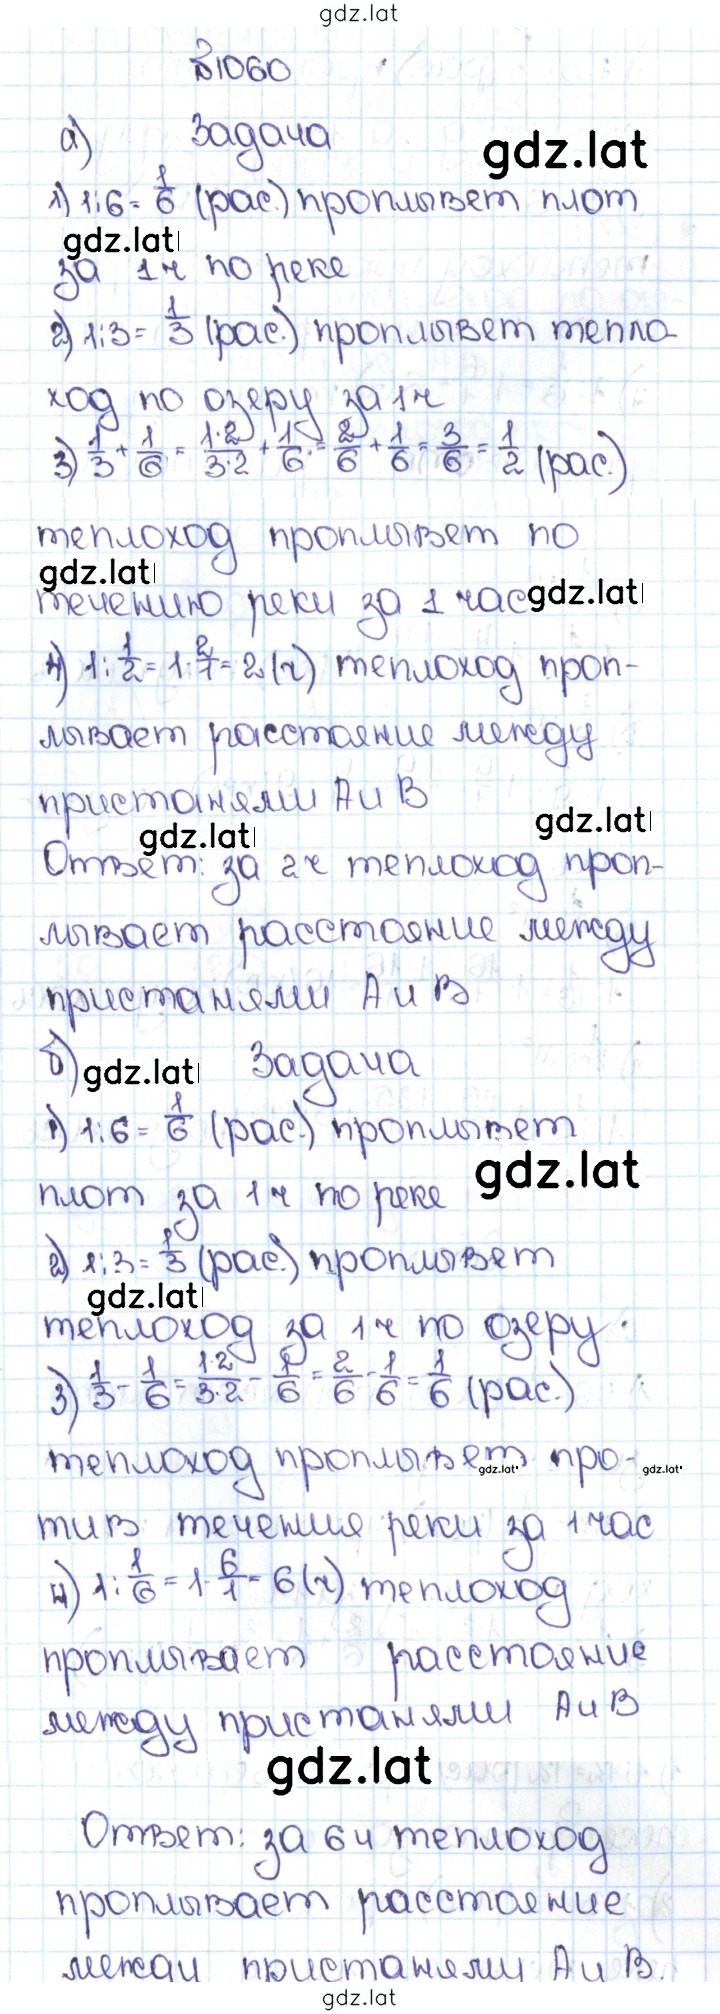 gdz.lat
№1060
а) Задача
gdz.lat
1) 1:6=1/6 (рас.) проплывет плот
gdz.lat
за 1ч по реке
2) 1:3=1/3 (рас.) проплывет тепло-
ход по озеру за 1ч
3) 1/3+1/6=1·2/3·2+1/6=2/6+1/6=3/6=1/2 (рас.)
теплоход проплывет по
gdz.lat
течению реки за 1 час
gdz.lat
4) 1:1/2=1·2/1=2(ч) теплоход проп-
лывает расстояние между
пристанями А и В
gdz.lat
gdz.lat
Ответ: за 2ч теплоход проп-
лывает расстояние между
пристанями А и В
б) Задача
gdz.lat
1) 1:6=1/6 (рас.) проплывет
gdz.lat
плот за 1ч по реке
2) 1:3=1/3 (рас.) проплывет
gdz.lat
теплоход за 1ч по озеру
3) 1/3-1/6=1·2/3·2-1/6=2/6-1/6=1/6 (рас.)
теплоход проплывет про-
gdz.lat
gdz.lat
тив течения реки за 1 час
4) 1:1/6=1·6/1=6(ч) теплоход
проплывает расстояние
между пристанями А и В
gdz.lat
Ответ: за 6ч теплоход
проплывает расстояние
между пристанями А и В.
gdz.lat